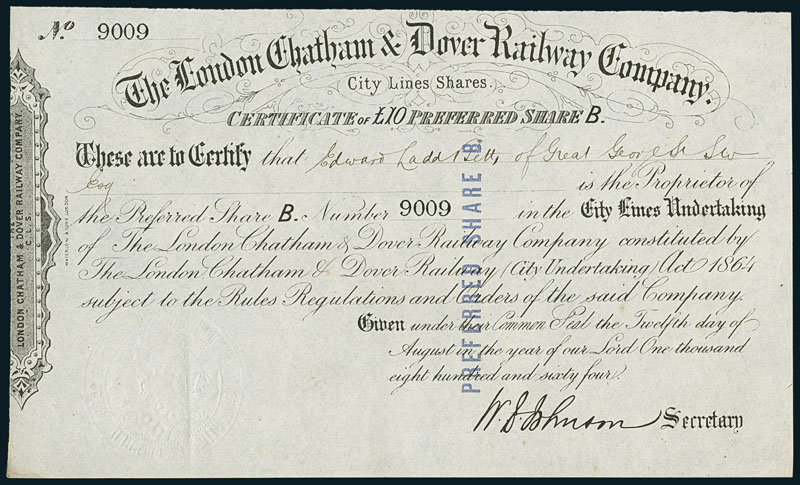 No 9009
The London Chatham & Dover Railway Company.
City Lines Shares.
CERTIFICATE OF £10 PREFERRED SHARE B.
These are to Certify that Edward Ladd Betts of Great George St
Esq is the Proprietor of
the Preferred Share B. Number 9009 in the City Lines Undertaking
of The London Chatham & Dover Railway Company constituted by
The London Chatham & Dover Railway (City Undertaking) Act 1864
subject to the Rules Regulations and Orders of the said Company.
Given under their Common Seal the Twelfth day of
August in the year of our Lord One thousand
eight hundred and sixty four.
W. D. Johnson Secretary
PREFERRED SHARE B.
LONDON CHATHAM & DOVER RAILWAY COMPANY.
C.L.S.
WATERLOW & SONS LONDON